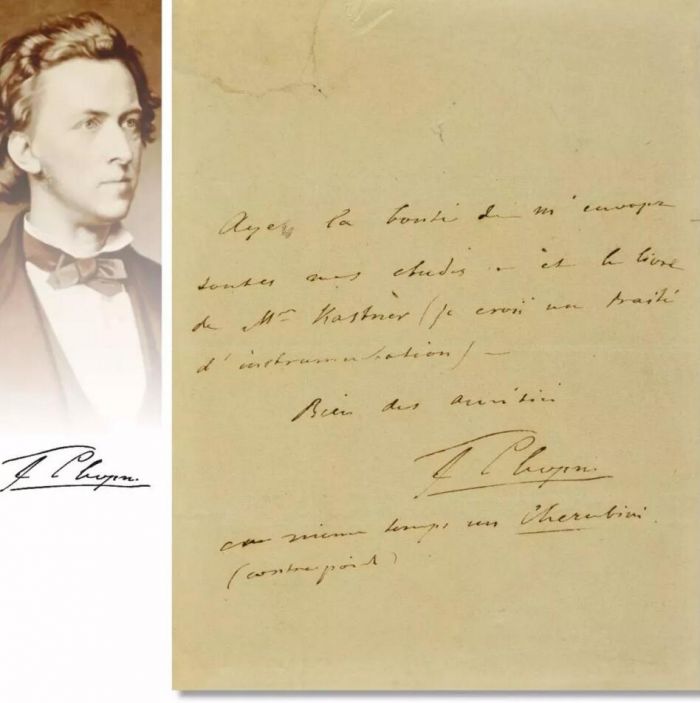 Ayez la bonté de m'envoyer
toutes mes études - et le livre
de Mr Kastner (je crois un traité
d'instrumentation) -
Bien des amitiés
F Chopin
F Chopin
en même temps un Cherubini.
(contrepoint)